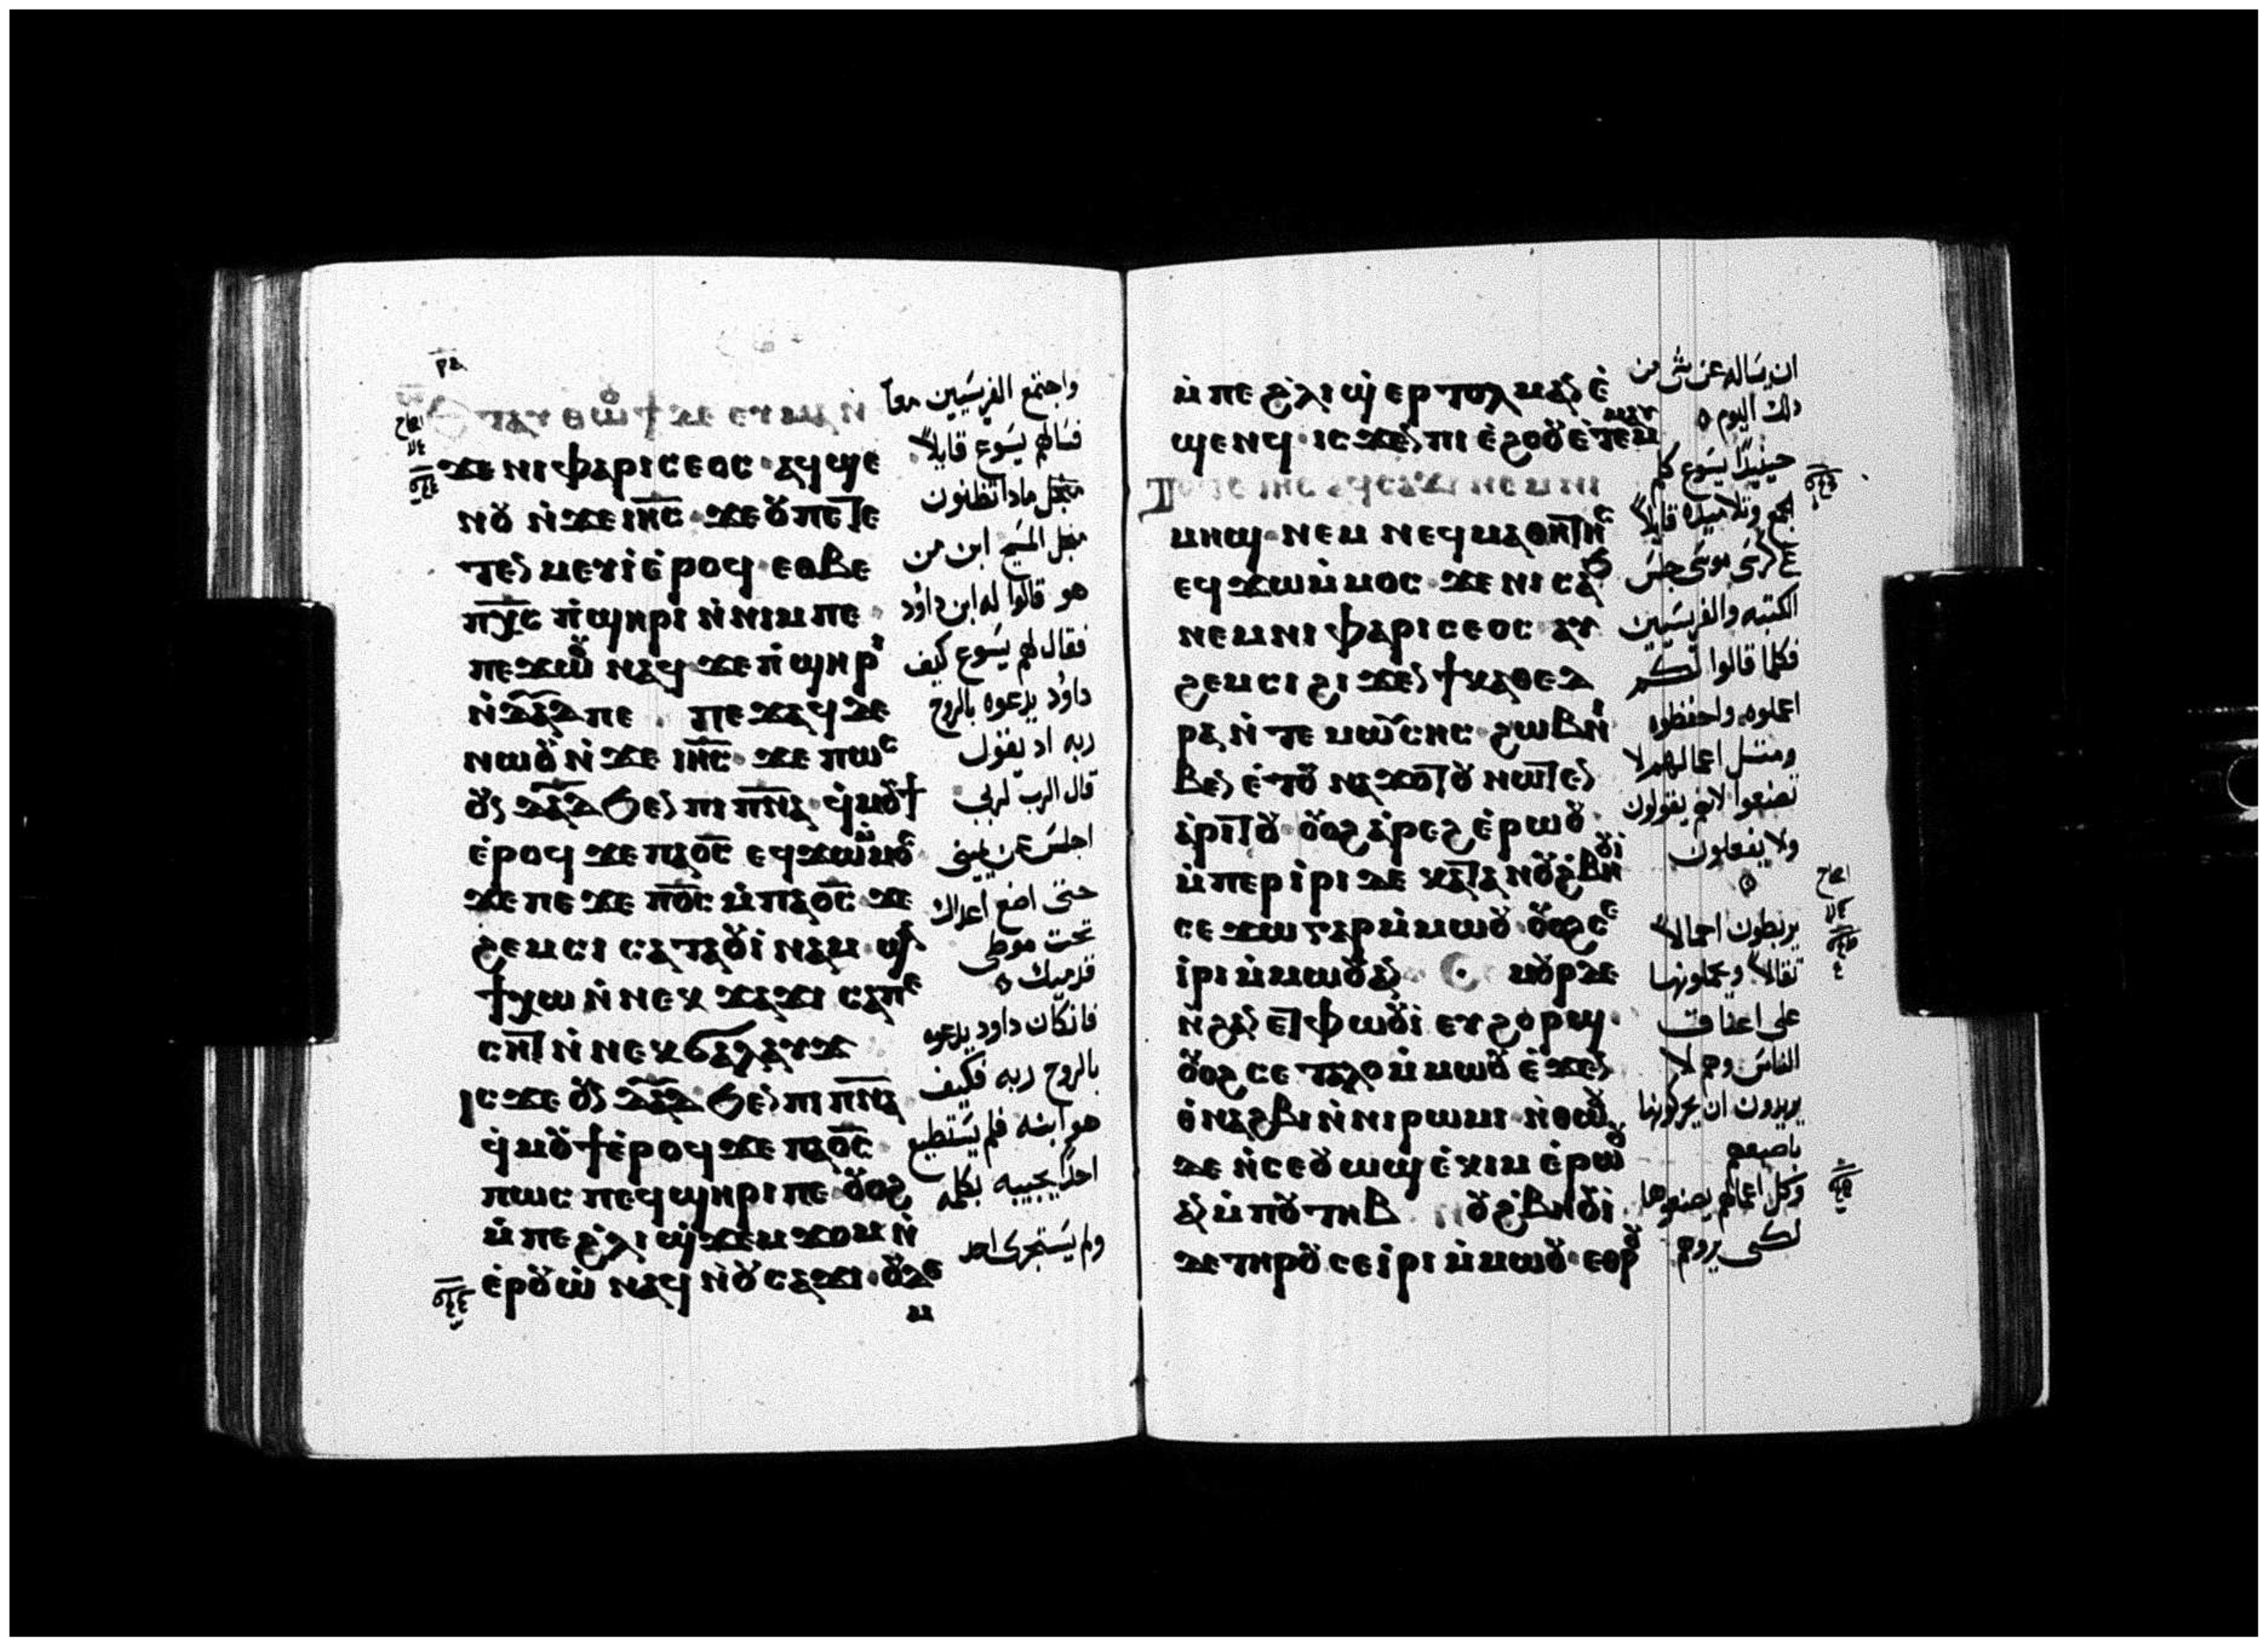 ⲣⲁ
ⲉⲧⲁⲩⲑⲱⲟⲩϯ ⲇⲉ ⲉⲩⲙⲁ ⲛ̇
ϫⲉ ⲛⲓⲫⲁⲣⲓⲥⲉⲟⲥ ⲁϥϣⲉ
ⲛⲟⲩ ⲛ̇ϫⲉ ⲓⲏ̅ⲥ̅ ϫⲉ ⲟⲩ ⲡⲉⲧⲉ
ⲧⲉⲛⲙⲉⲩⲓ ⲉ̇ⲣⲟϥ ⲉⲑⲃⲉ
ⲡⲭ̅ⲥ̅ ⲡ̇ϣⲏⲣⲓ ⲛ̇ⲛⲓⲙ ⲡⲉ
ⲡⲉϫⲱⲟⲩ ⲛⲁϥ ϫⲉ ⲡ̇ϣⲏⲣⲓ
ⲛ̇ⲇⲁ̅ⲇ̅ ⲡⲉ ⲡⲉϫⲁϥ ⲇⲉ
ⲛⲱⲟⲩ ⲛ̇ϫⲉ ⲓⲏ̅ⲥ̅ ϫⲉ ⲡⲱⲥ
ⲟⲩⲛ ⲇⲁ̅ⲇ̅ ϧⲉⲛ ⲡⲓⲡⲛ̅ⲁ̅ ϥ̇ⲙⲟⲩϯ
ⲉ̇ⲣⲟϥ ϫⲉ ⲡⲁⲟ̅ⲥ̅ ⲉϥϫⲱⲙ̇ⲙⲟⲥ
ϫⲉ ⲡⲉϫⲉ ⲡⲟ̅ⲥ̅ ⲙ̇ⲡⲁⲟ̅ⲥ̅ ϫⲉ
ϩⲉⲙⲥⲓ ⲥⲁⲧⲁⲟⲩⲓ̇ⲛⲁⲙ ϣⲁϯ
ϯⲭⲱ ⲛ̇ⲛⲉⲕϫⲁϫⲓ ⲥⲁⲡⲉ
ⲥⲏⲧ ⲛ̇ⲛⲉⲕϭⲁⲗⲁⲩϫ
ⲓⲥϫⲉ ⲟⲩⲛ ⲇⲁ̅ⲇ̅ ϧⲉⲛ ⲡⲓⲡⲛ̅ⲁ̅
ϥ̇ⲙⲟⲩϯ ⲉ̇ⲣⲟϥ ϫⲉ ⲡⲁⲟ̅ⲥ̅
ⲡⲱⲥ ⲡⲉϥϣⲏⲣⲓ ⲡⲉ ⲟⲩⲟϩ
ⲙ̇ⲡⲉ ϩ̇ⲗⲓ ϣ̇ϫⲉⲙϫⲟⲙ ⲛ̇
ⲉ̇ⲣⲟⲩⲱ̇ ⲛⲁϥ ⲛ̇ⲟⲩⲥⲁϫⲓ ⲟⲩⲇⲉ
واجتمع الفريسيين معاً
فسالهم يسوع قايلاً
ماذا تظنون
المسيح ابن من
هو قالوا له ابن داود
فقال لهم يسوع كيف
داود يدعوه بالروح
ربه اد يقول
قال الرب لربي
اجلس عن يميني
حتى اضع اعداك
تحت موطى
قدميك
فان كان داود يدعوه
بالروح ربه فكيف
هو ابنه فلم يستطيع
احد يجيبه بكلمه
ولم يستجرى احد
ⲙ̇ⲡⲉ ϩ̇ⲗⲓ ϣ̇ⲉⲣⲧⲟⲗⲙⲁⲛ ⲉ̇
ϣⲉⲛϥ ⲓⲥϫⲉⲛ ⲡⲓⲉ̇ϩⲟⲟⲩ ⲉ̇ⲧⲉⲙⲙⲁⲩ
ⲧⲟⲧⲉ ⲓⲏⲥ ⲁϥⲥⲁϫⲓ ⲛⲉⲙ ⲛⲓ
ⲙⲏϣ ⲛⲉⲙ ⲛⲉϥⲙⲁⲑⲏⲧⲏⲥ
ⲉϥϫⲱⲙ̇ⲙⲟⲥ ϫⲉ ⲛⲓⲥⲁϧ
ⲛⲉⲙ ⲛⲓⲫⲁⲣⲓⲥⲉⲟⲥ ⲁⲩ
ϩⲉⲙⲥⲓ ϩⲓϫⲉⲛ ϯⲕⲁⲑⲉⲇ
ⲣⲁ ⲛ̇ⲧⲉ ⲙⲱⲩⲥⲏⲥ ϩⲱⲃ ⲛⲓ
ⲃⲉⲛ ⲉ̇ⲧⲟⲩⲛⲁϫⲟⲧⲟⲩ ⲛⲱⲧⲉⲛ
ⲁ̇ⲣⲓⲧⲟⲩ ⲟⲩⲟϩ ⲁ̇ⲣⲉϩ ⲉ̇ⲣⲱⲟⲩ
ⲙ̇ⲡⲉⲣⲓ̇ⲣⲓ ⲇⲉ ⲕⲁⲧⲁ ⲛⲟⲩϩ̇ⲃⲏⲟⲩⲓ
ⲥⲉϫⲱ ⲅⲁⲣ ⲙ̇ⲙⲱⲟⲩ ⲟⲩⲟϩ ⲥⲉ
ⲓ̇ⲣⲓ ⲙ̇ⲙⲱⲟⲩ ⲁⲛ ⲥⲉⲙⲟⲩⲣ ⲇⲉ
ⲛ̇ϩⲁⲛⲉⲧⲫⲱⲟⲩⲓ̇ ⲉⲩϩⲟⲣϣ
ⲟⲩⲟϩ ⲥⲉⲧⲁⲗⲟ ⲙ̇ⲙⲱⲟⲩ ⲉ̇ϫⲉⲛ
ⲑ̇ⲛⲁϩⲃⲓ ⲛ̇ⲛⲓⲣⲱⲙⲓ ⲛ̇ⲑⲱⲟⲩ
ⲇⲉ ⲛ̇ⲥⲉⲟⲩⲱϣ ⲉ̇ⲕⲓⲙ ⲉ̇ⲣⲱⲟⲩ
ⲁⲛ ⲙ̇ⲡⲟⲩⲧⲏⲃ ⲛⲟⲩϩ̇ⲃⲏⲟⲩⲓ
ⲇⲉ ⲧⲏⲣⲟⲩ ⲥⲉⲓ̇ⲣⲓ ⲙ̇ⲙⲱⲟⲩ ⲉⲑⲣⲟⲩ
ان يساله عن شى من
ذلك اليوم
حينيذاً يسوع كلم
الجمع وتلاميذه قايلاً
على كرسى موسى جلس
الكتبه والفريسيين
فكلما قالوا لكم
اعملوه واحفظوه
ومتل اعمالهم لا
تصنعوا لانهم يقولون
ولا يفعلون
يربطون احمالاً
تقالاً ويحملونها
على اعناق
الناس وهم لا
يريدون ان يحركونها
باصبعهم
وكل اعمالهم يصنعوها
لكى يروهم